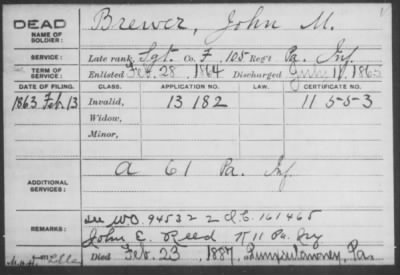 DEAD Brewer, John M.
NAME OF SOLDIER:
SERVICE: Late rank, Sgt. Co. F, 105 Reg't Pa. Inf.
TERM OF SERVICE: Enlisted Feb. 28 1864 Discharged 11 1865
DATE OF FILING. CLASS. APPLICATION NO. LAW. CERTIFICATE NO.
1863 Feb. 13 Invalid, 13 182 11 5-5-3
Widow,
Minor,
ADDITIONAL SERVICES: A 61 Pa. Inf
REMARKS: see WO. 94532 2 161465
John E. Reed Pa.
Died Feb. 23 1887, Punxsutawney, Pa.